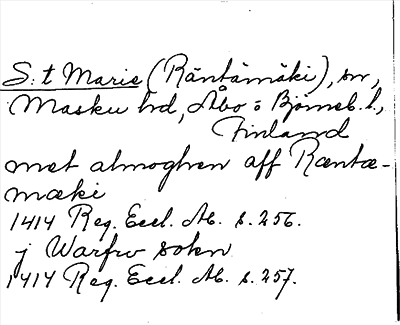 S:t Marie (Räntämäki), sn,
Masku hd, Åbo o Björneb. l.,
Finland
met almoghen aff Rænta-
mæki
1414 Reg. Eccl. Ab. s. 256.
j Warfrv sokn
1414 Reg. Eccl. Ab. s. 257.